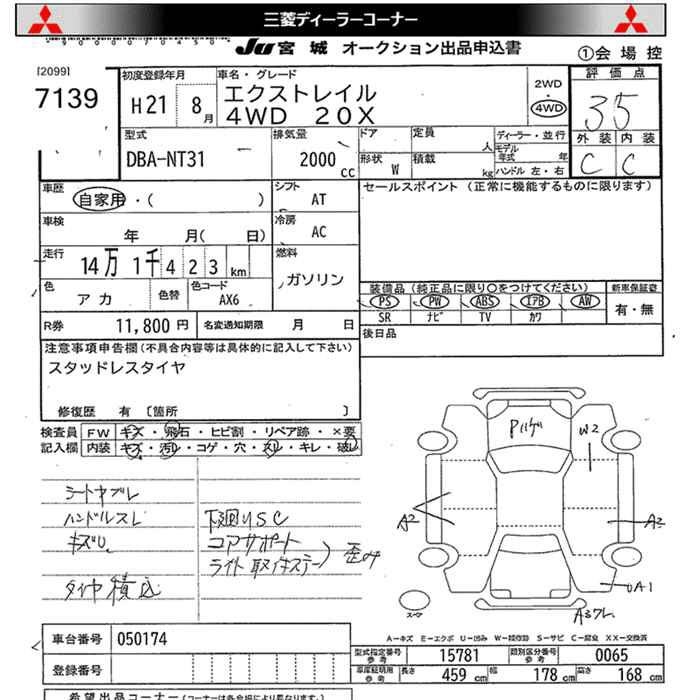 三菱ディーラーコーナー
JU宮城 オークション出品申込書
①会場控
[2099]
7139
初度登録年月
H21 8月
車名・グレード
エクストレイル
4WD 20X
2WD
・
4WD
評価点
3.5
外装 内装
C C
型式
DBA-NT31
排気量
2000 cc
ドア
定員
人
形状
W
積載
kg
ディーラー・並行
モデル年式 年
ハンドル 左・右
車歴
自家用・( )
シフト
AT
セールスポイント (正常に機能するものに限ります)
車検
年 月( 日)
冷房
AC
走行
14万 1千 4 2 3 km
燃料
ガソリン
色
アカ
色替
色コード
AX6
装備品 (純正品に限り○をつけてください)
新車保証書
PS PW ABS エアB AW
有・無
SR ナビ TV カワ
R券
11,800 円
名変通知期限 月 日
後日品
注意事項申告欄(不具合内容等は具体的に記入して下さい)
スタッドレスタイヤ
修復歴 有 〔箇所 〕
検査員
記入欄
FW キズ・飛石・ヒビ割・リペア跡・×要
内装 キズ・汚れ・コゲ・穴・スレ・キレ・破れ
シートヤブレ
ハンドルスレ
キズU
タイヤ積込
下廻りSC
コアサポート
ライト取付ステー)歪み
Pハゲ
W2
A2
A2
UA1
スペア
A3フレ
A-キズ E-エクボ U-凹み W-補修跡 S-サビ C-腐食 XX-交換済
車台番号
050174
登録番号
型式指定番号
参考
15781
類別区分番号
参考
0065
車庫証明用
参考
長さ
459 cm
幅
178 cm
高さ
168 cm
希望出品コーナー(コーナーは各会場により異なります。)